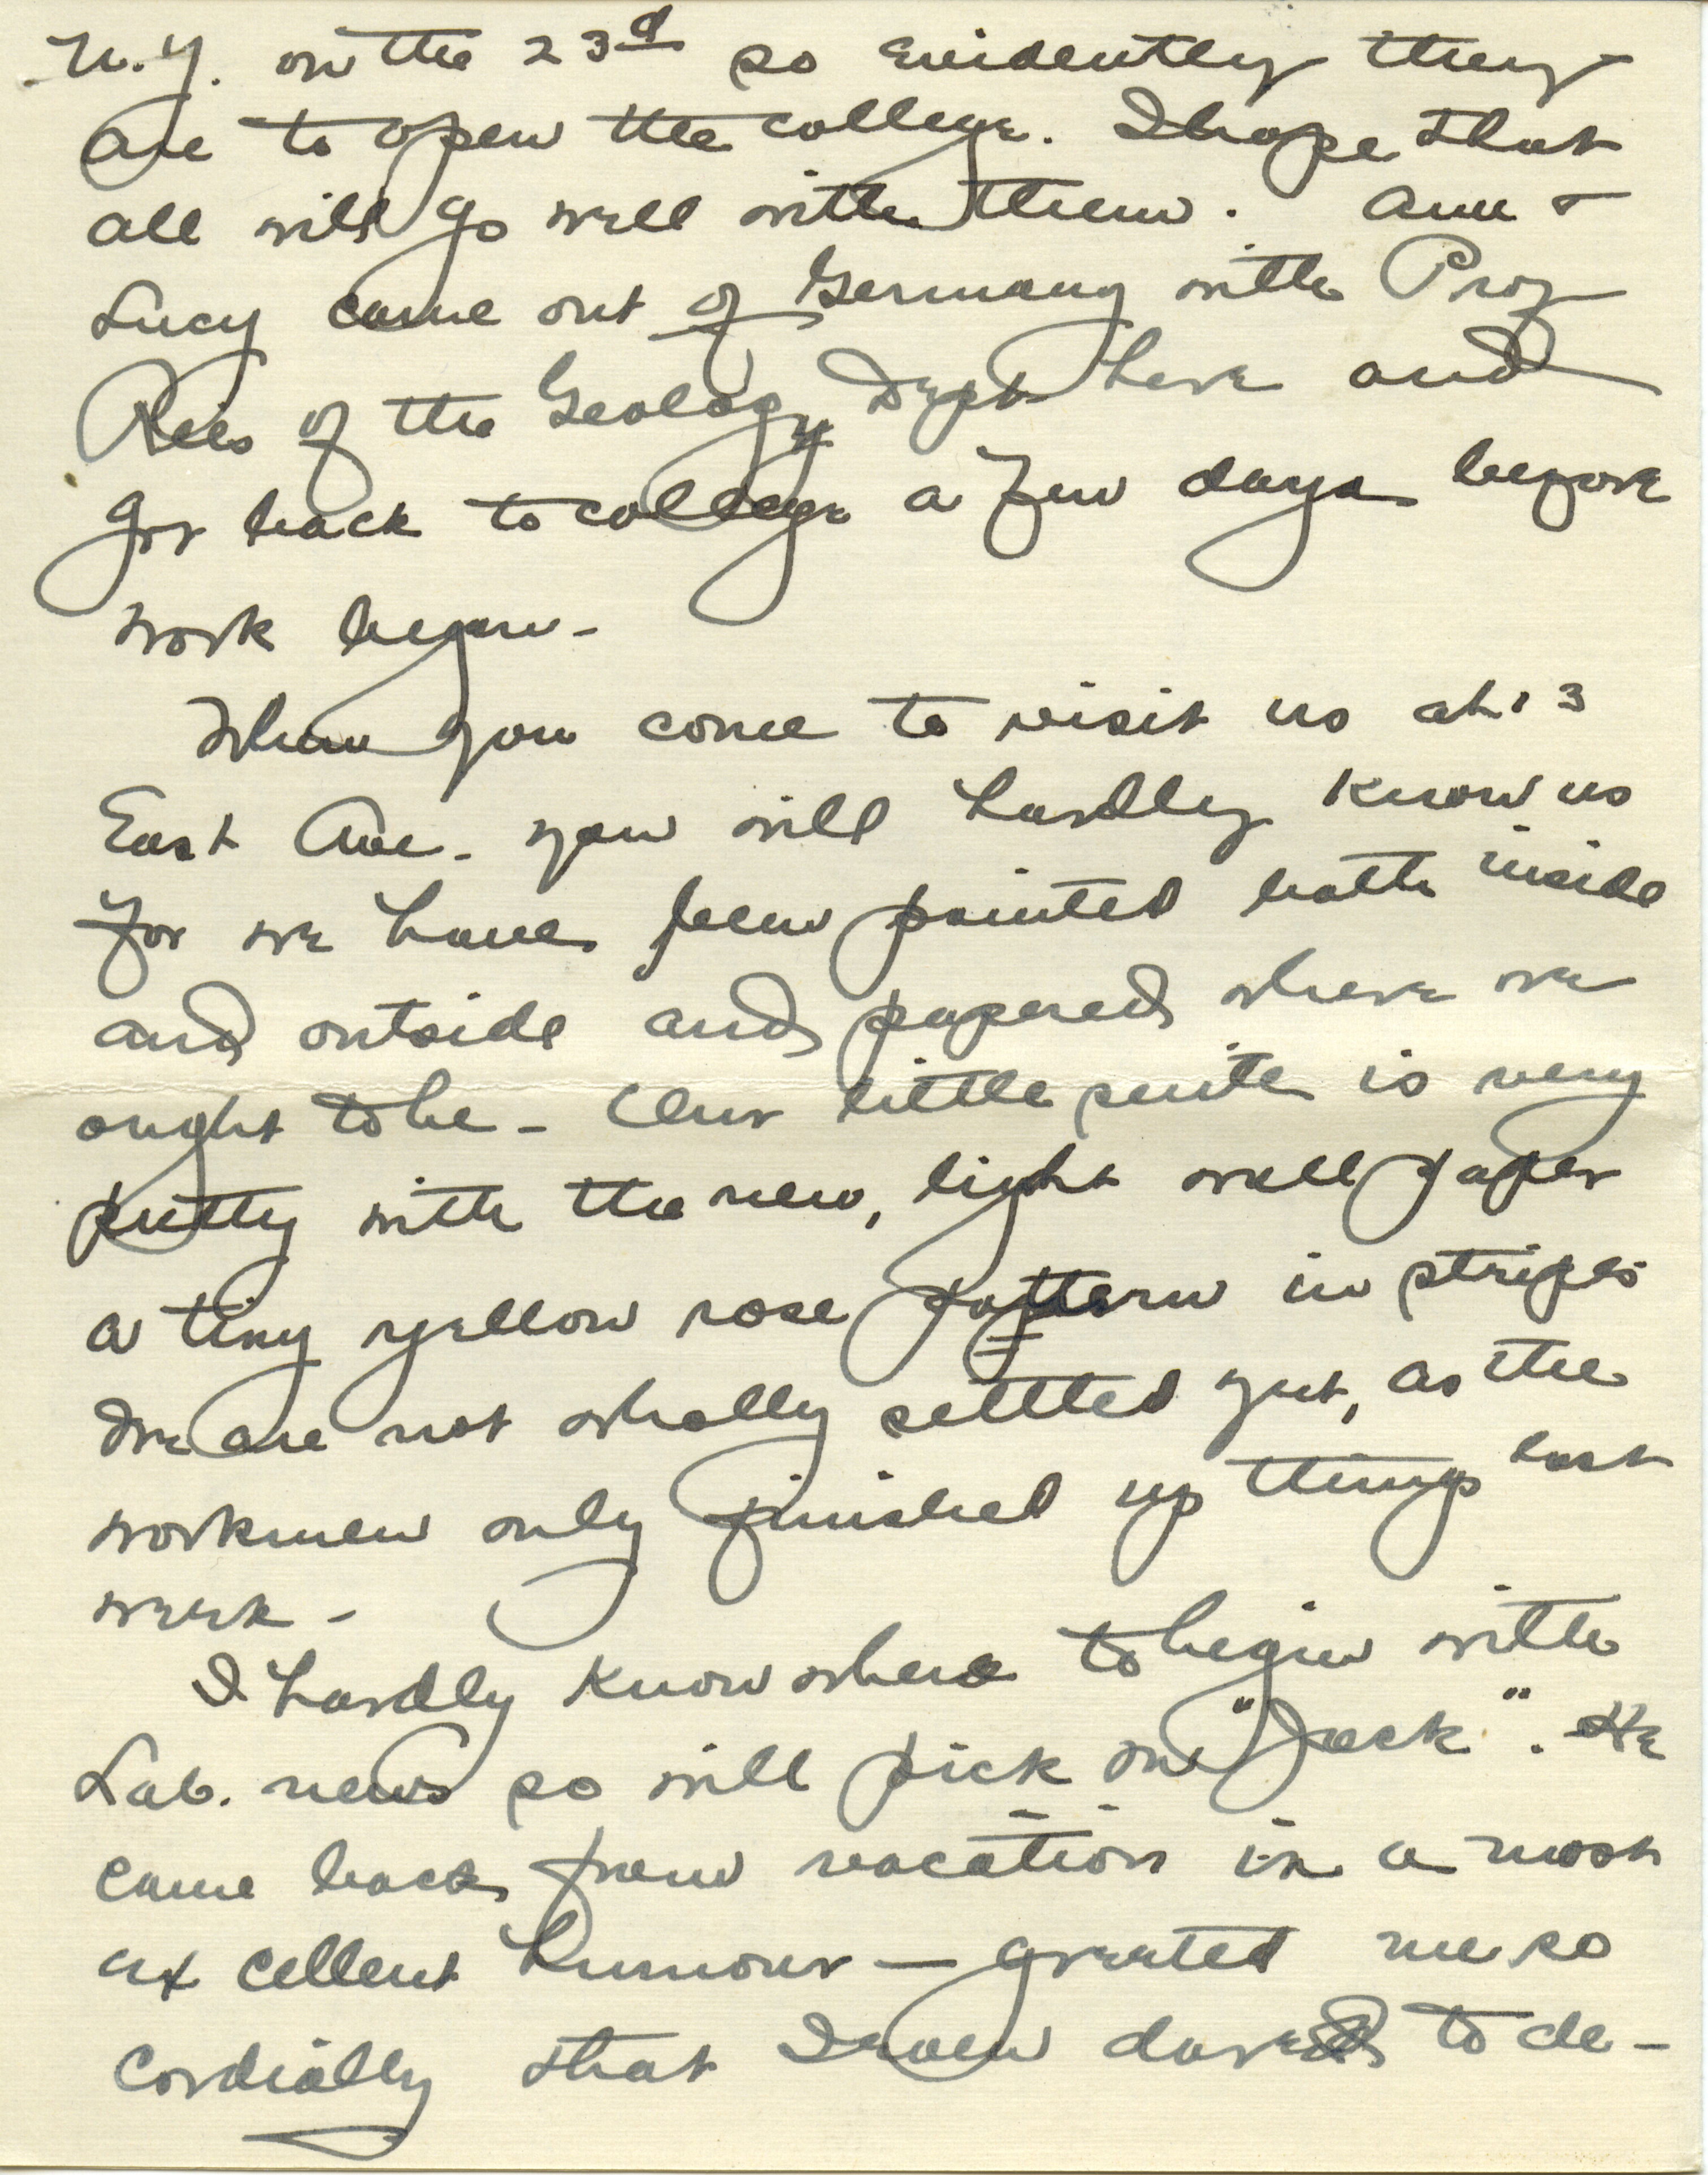 N.Y. on the 23d so evidently they
are to open the college. I hope that
all will go well with them. Ann &
Lucy came out of Germany with Prof
Ries of the Geology Dept here and
got back to college a few days before
work began -
When you come to visit us at 13
East Ave. you will hardly know us
for we have been painted both inside
and outside and papered where we
ought to be - Our little suite is very
pretty with the new, light wall paper
a tiny yellow rose pattern in stripes
We are not wholly settled yet, as the
workmen only finished up things last
week -
I hardly know where to begin with
Lab. news so will pick on "Jack". He
came back from vacation in a most
excellent humour — greeted me so
cordially that I even dared to de-